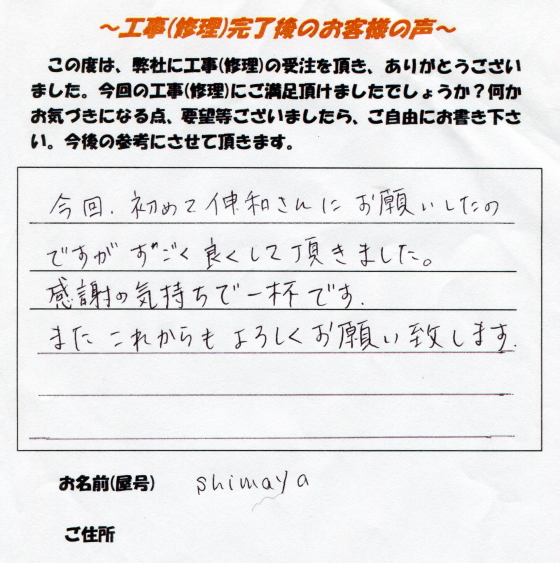 ～工事(修理)完了後のお客様の声～
この度は、弊社に工事(修理)の受注を頂き、ありがとうござい
ました。今回の工事(修理)にご満足頂けましたでしょうか？何か
お気づきになる点、要望等ございましたら、ご自由にお書き下さ
い。今後の参考にさせて頂きます。
今回、初めて伸和さんにお願いしたの
ですがすごく良くして頂きました。
感謝の気持ちで一杯です．
またこれからもよろしくお願い致します．
お名前(屋号) shimaya
ご住所